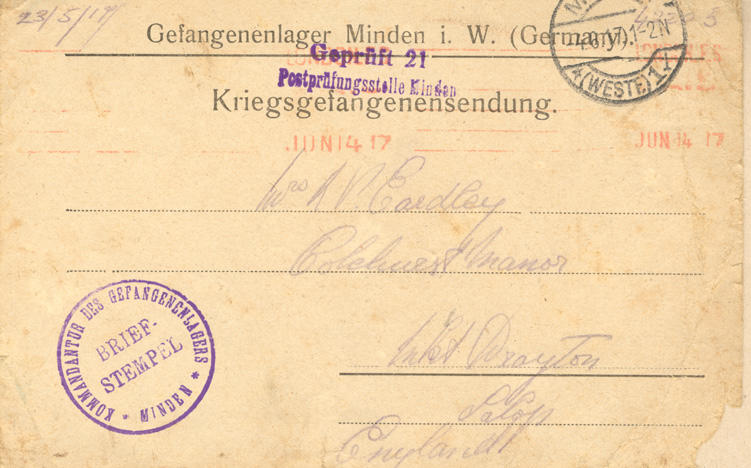 23/5/17
Gefangenenlager Minden i. W. (German
Geprüft 21
Postprüfungsstelle Minden
Kriegsgefangenensendung.
17.1-2N
*(WESTF)1*
LONDON
JUN 14 17
JUN 14 17
Mrs A P. Eardley
Colehurst Manor
Mkt Drayton
Salop
England
KOMMANDANTUR DES GEFANGENENLAGERS
* MINDEN *
BRIEF-
STEMPEL